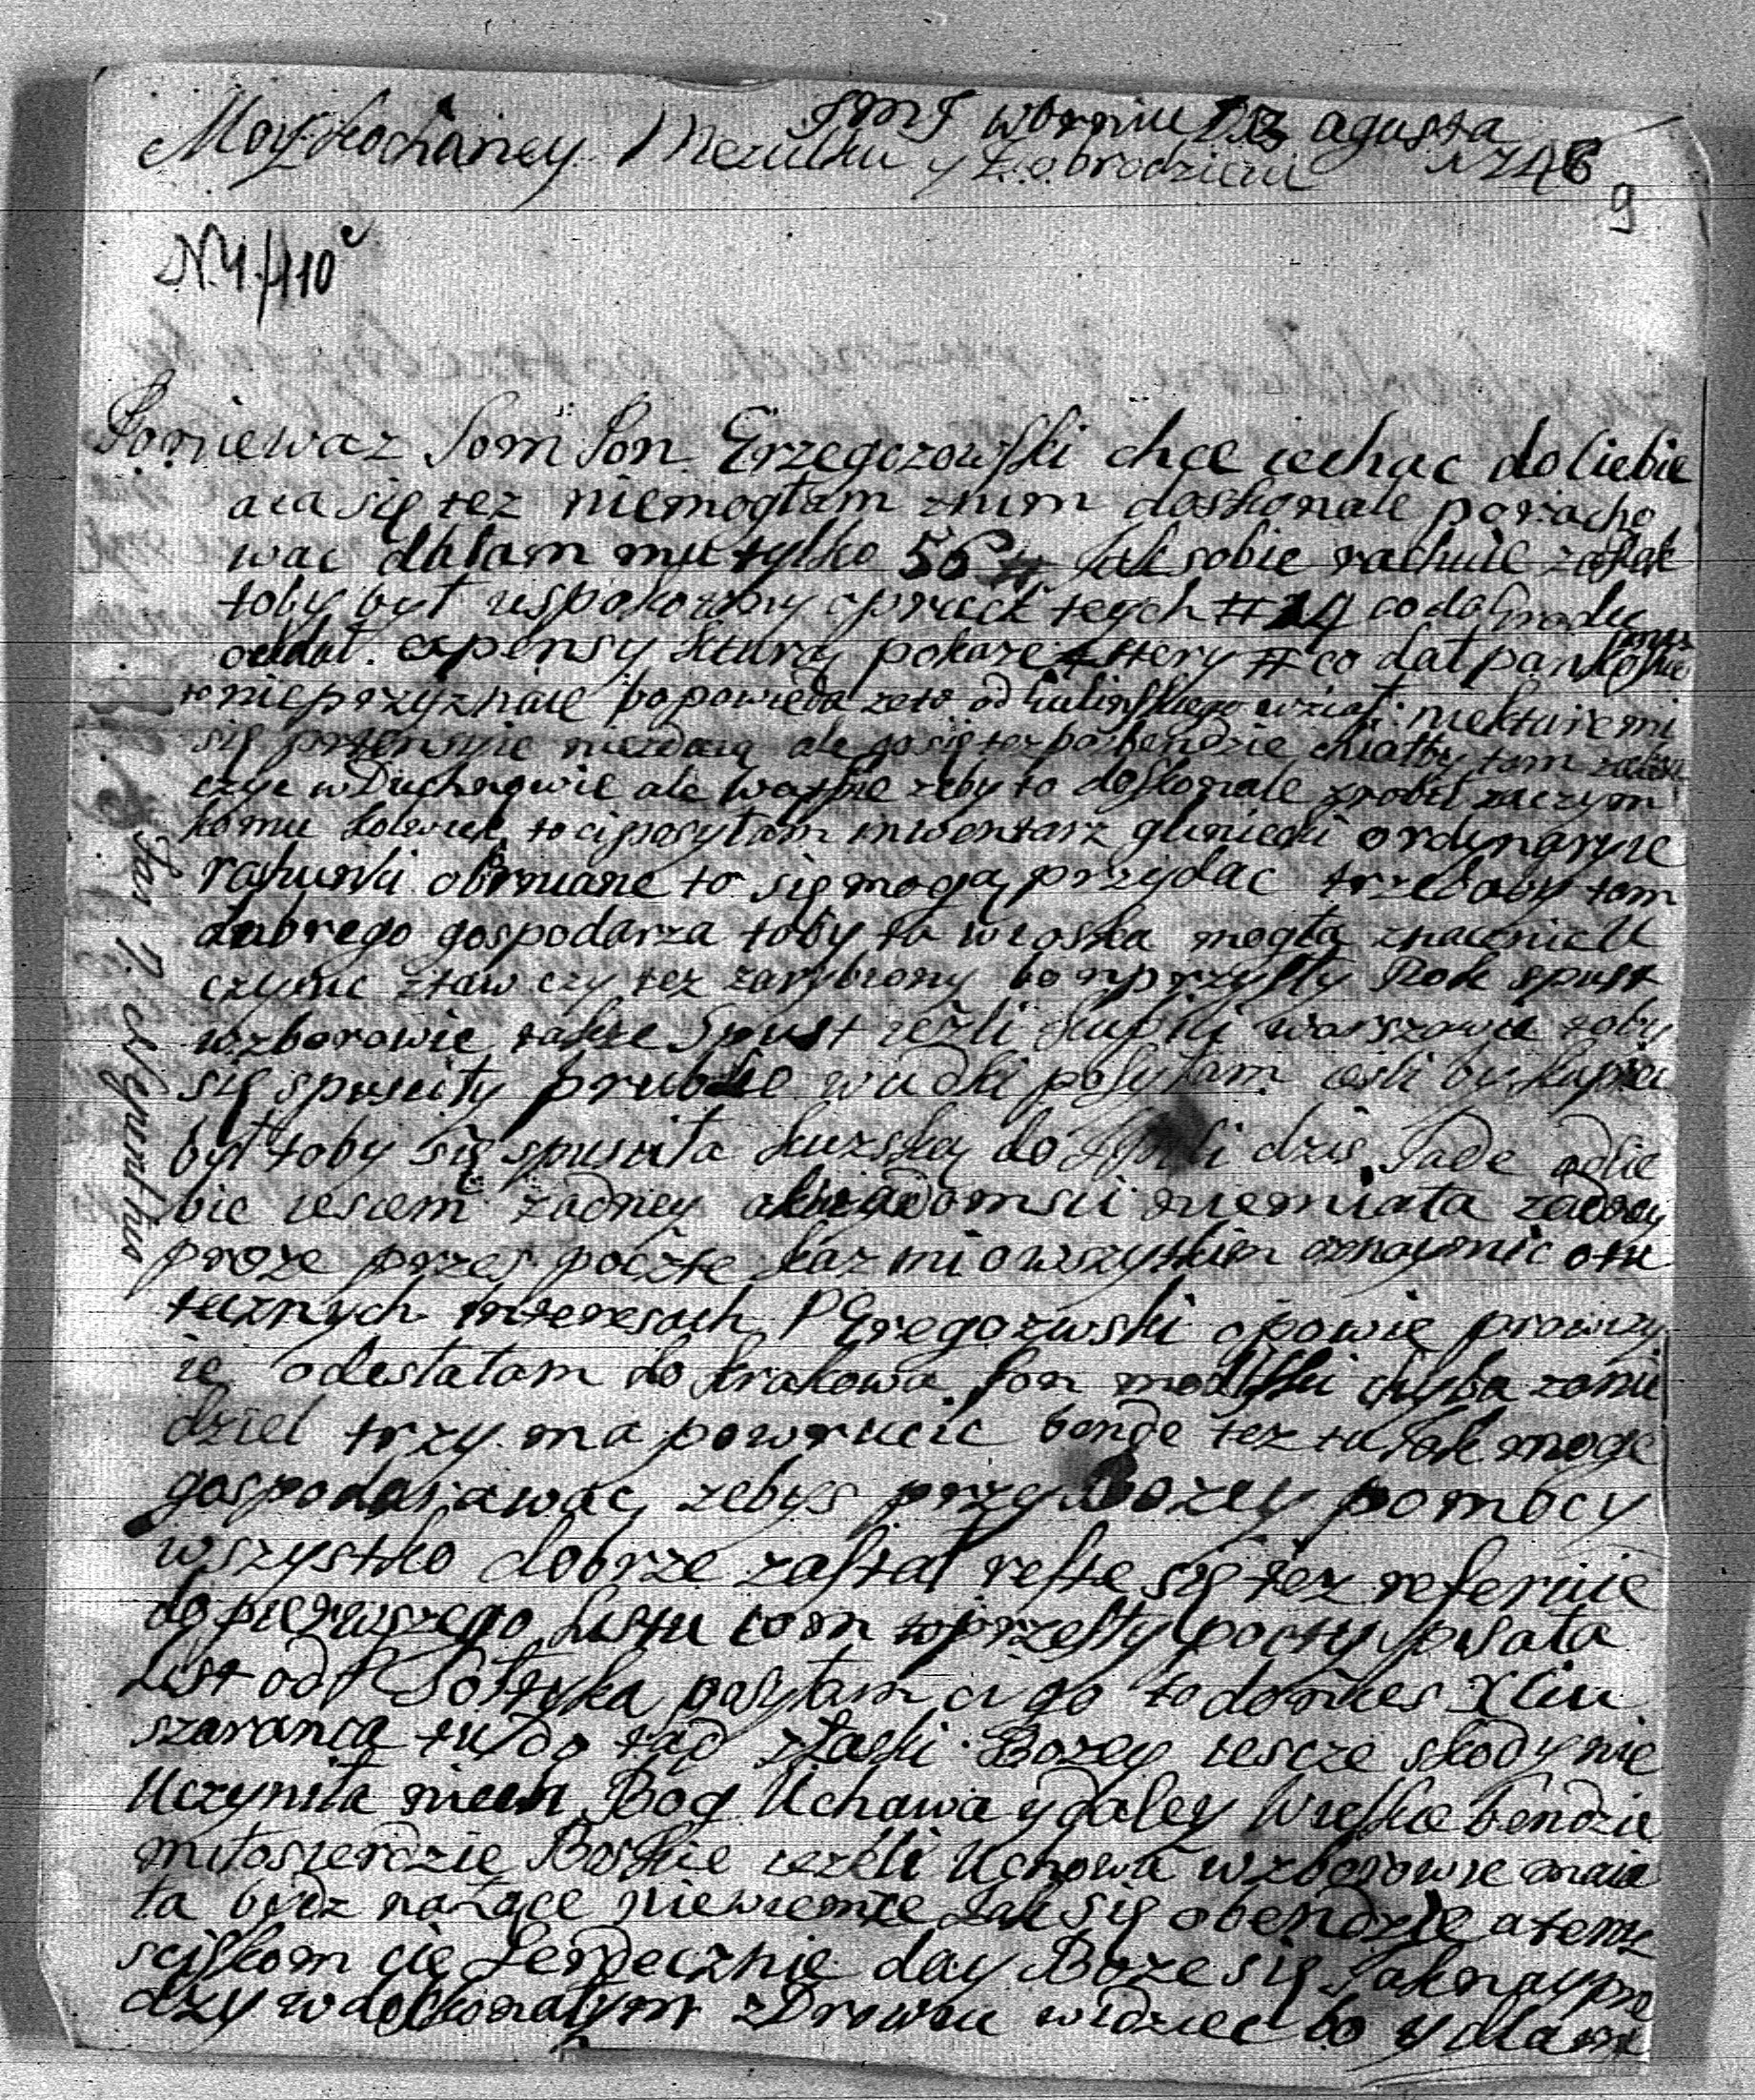 JMJ wbrniu 13 agusta
Moy Kochaney Mezulku y Dobrodzieiu 1748
9
N.4./110
Poniewaz Jom Pon Grzegozowski chce iechac do Ciebie
a ia się tez niemogłam znim doskonale poracho
wac dałam mu tylko 56 # Jak sobie rachuie
toby był uspokoiony oprucz tych # 14 co do Grodu
oddał. expensy kturą pokaze cztery # co dał
to nieprzyznaie bo powieda zeto od wział: niekture mi
się niezdaią ale go się tez chciałby tam
czyc w Duchnowie ale wasne zeby to doskonale zrobił zaczym
komu kolwiek to ci posyłam inwentarz glinicki ordynaryie
rahunki obrniane to się mogą przydac trzebaby tam
dobrego gospodarza toby ta wioska mogła znacznie U
czynic staw czy tez zarybiony bo naprzysły Rok spust
wzborowie takze Spust iezli kupili warszawie toby
się spusciły prubke wudki posyłam iesli by kupiec
był toby się spusciła kurską do dzis Jade odcie
bie iescem zadney akwiadomsci niemiała zadney
proze przes poczte kaz mi owszystkim oznaymic otu
tecznych interesach P Gregozwski opowie prowizy
ie odesłałam do krakowa Pon modliski chyba zanie
dziel trzy ma powrucic bende tez tu Jak moge
gospodarawac zebys przy Bozey pomocy
wszystko dobrze zastał reste się tez referuie
do pierwszego Listu com toprzesły pocty pisała
List od P Sołtyka posyłam ci go to donies X Ciu
szaranca tu do tąd złaski Bozey iescze skody nie
Uczyniła niech Bog Uchowa y daley Wielkie bendzie
miłosierdzie Boskie iezeli Uchowa wzborowie maia
ta bydz nazące niewiemze Jak się obendzie a teraz
sciskom cie Serdecznie day Boze się Jaknaypre
dzy w doskonałym zdrowiu widziec bo y dla
Jus N. Neyuntus